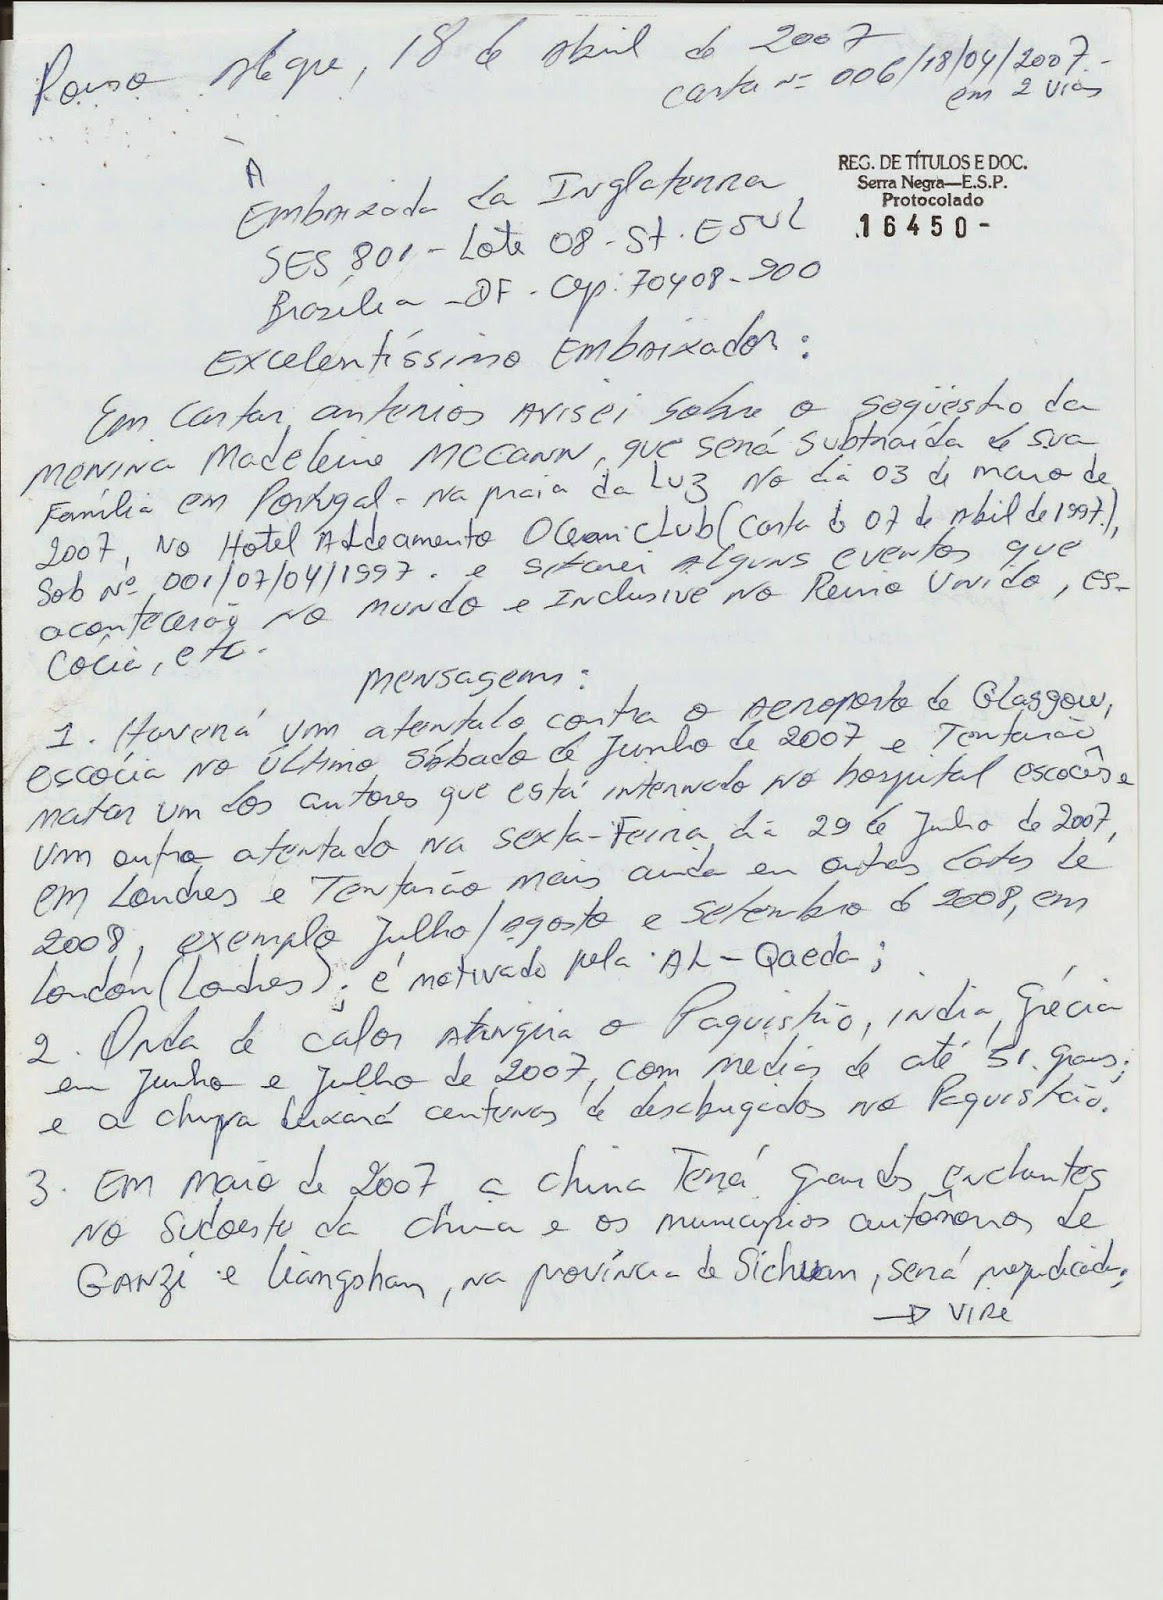 Pouso Alegre, 18 de Abril de 2007
Carta nº 006/18/04/2007.-
em 2 vias
REG. DE TÍTULOS E DOC.
Serra Negra—E.S.P.
Protocolado
16450-
À
Embaixada da Inglaterra
SES 801 - Lote 08 - St. E SUL
Brasília - DF - Cep: 70408-900
Excelentíssimo Embaixador:
Em Cartas anterios Avisei sobre o seqüestro da
menina Madeleine MCCANN, que será subtraída de sua
Família em Portugal - na praia da Luz no dia 03 de maio de
2007, no Hotel Aldeamento Ocean Club (Carta de 07 de Abril de 1997.),
Sob Nº 001/07/04/1997. e sitarei Alguns eventos que
acontecerão no mundo e Inclusive no Reino Unido, es-
cócia, etc.
Mensagem:
1. Haverá um atentado contra o Aeroporto de Glasgow,
escócia no Último Sábado de Junho de 2007 e Tentarão
matar um dos autores que está internado no hospital escocês e
um outro atentado na sexta-Feira, dia 29 de Junho de 2007,
em Londres e Tentarão mais ainda em outras datas de
2008, exemplo Julho/Agosto e setembro de 2008, em
London (Londres); é motivado pela AL-Qaeda;
2. Onda de calor Atingira o Paquistão, india, Grécia
em Junho e Julho de 2007, com medias de até 51. graus;
e a chuva deixará centenas de desabrigados no Paquistão.
3. Em Maio de 2007, a China Terá grandes enchentes
no Sudoeste da china e os municípios autônomos de
GANZI e Liangshan, na província de Sichuan, será prejudicada;
→ VIRE